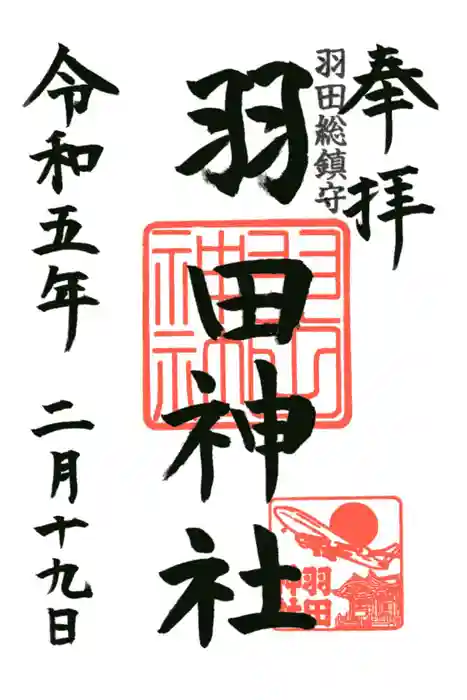 奉拝
羽田総鎮守
羽田神社
令和五年 二月十九日
羽田神社
羽田
神社